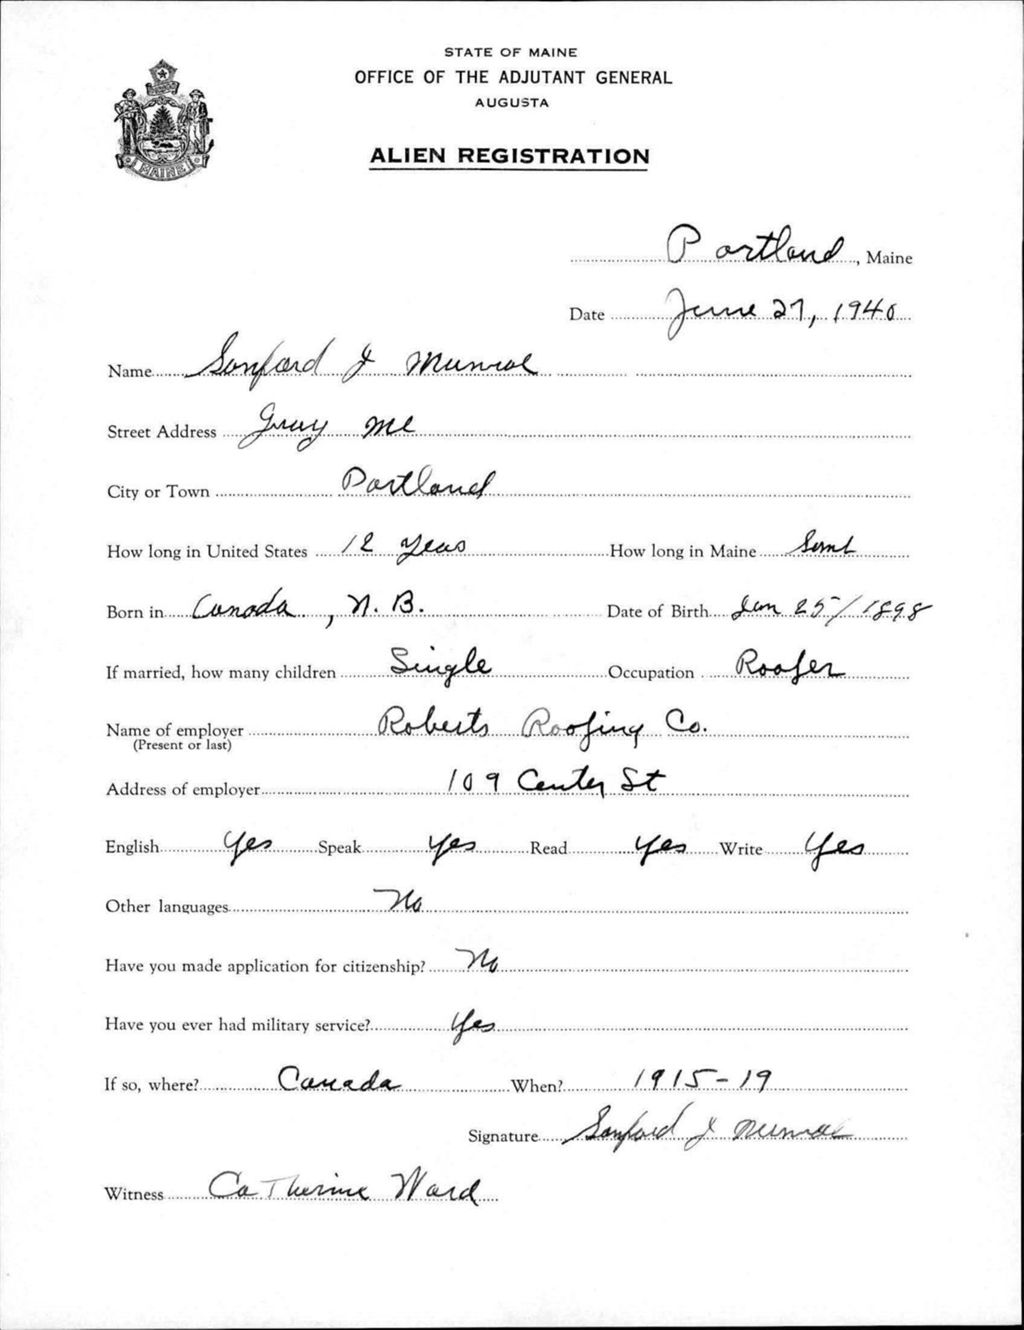 STATE OF MAINE
OFFICE OF THE ADJUTANT GENERAL
AUGUSTA
ALIEN REGISTRATION
MAINE
Portland, Maine
Date June 27, 1940
Name Sanford J Munroe
Street Address Gray Me
City or Town Portland
How long in United States 12 Years How long in Maine Same
Born in Canada, N. B. Date of Birth Jan 25/1898
If married, how many children Single Occupation Roofer
Name of employer Roberts Roofing Co.
(Present or last)
Address of employer 109 Center St
English Yes Speak Yes Read Yes Write Yes
Other languages No
Have you made application for citizenship? No
Have you ever had military service? Yes
If so, where? Canada When? 1915-19
Signature Sanford J Munroe
Witness Catherine Ward